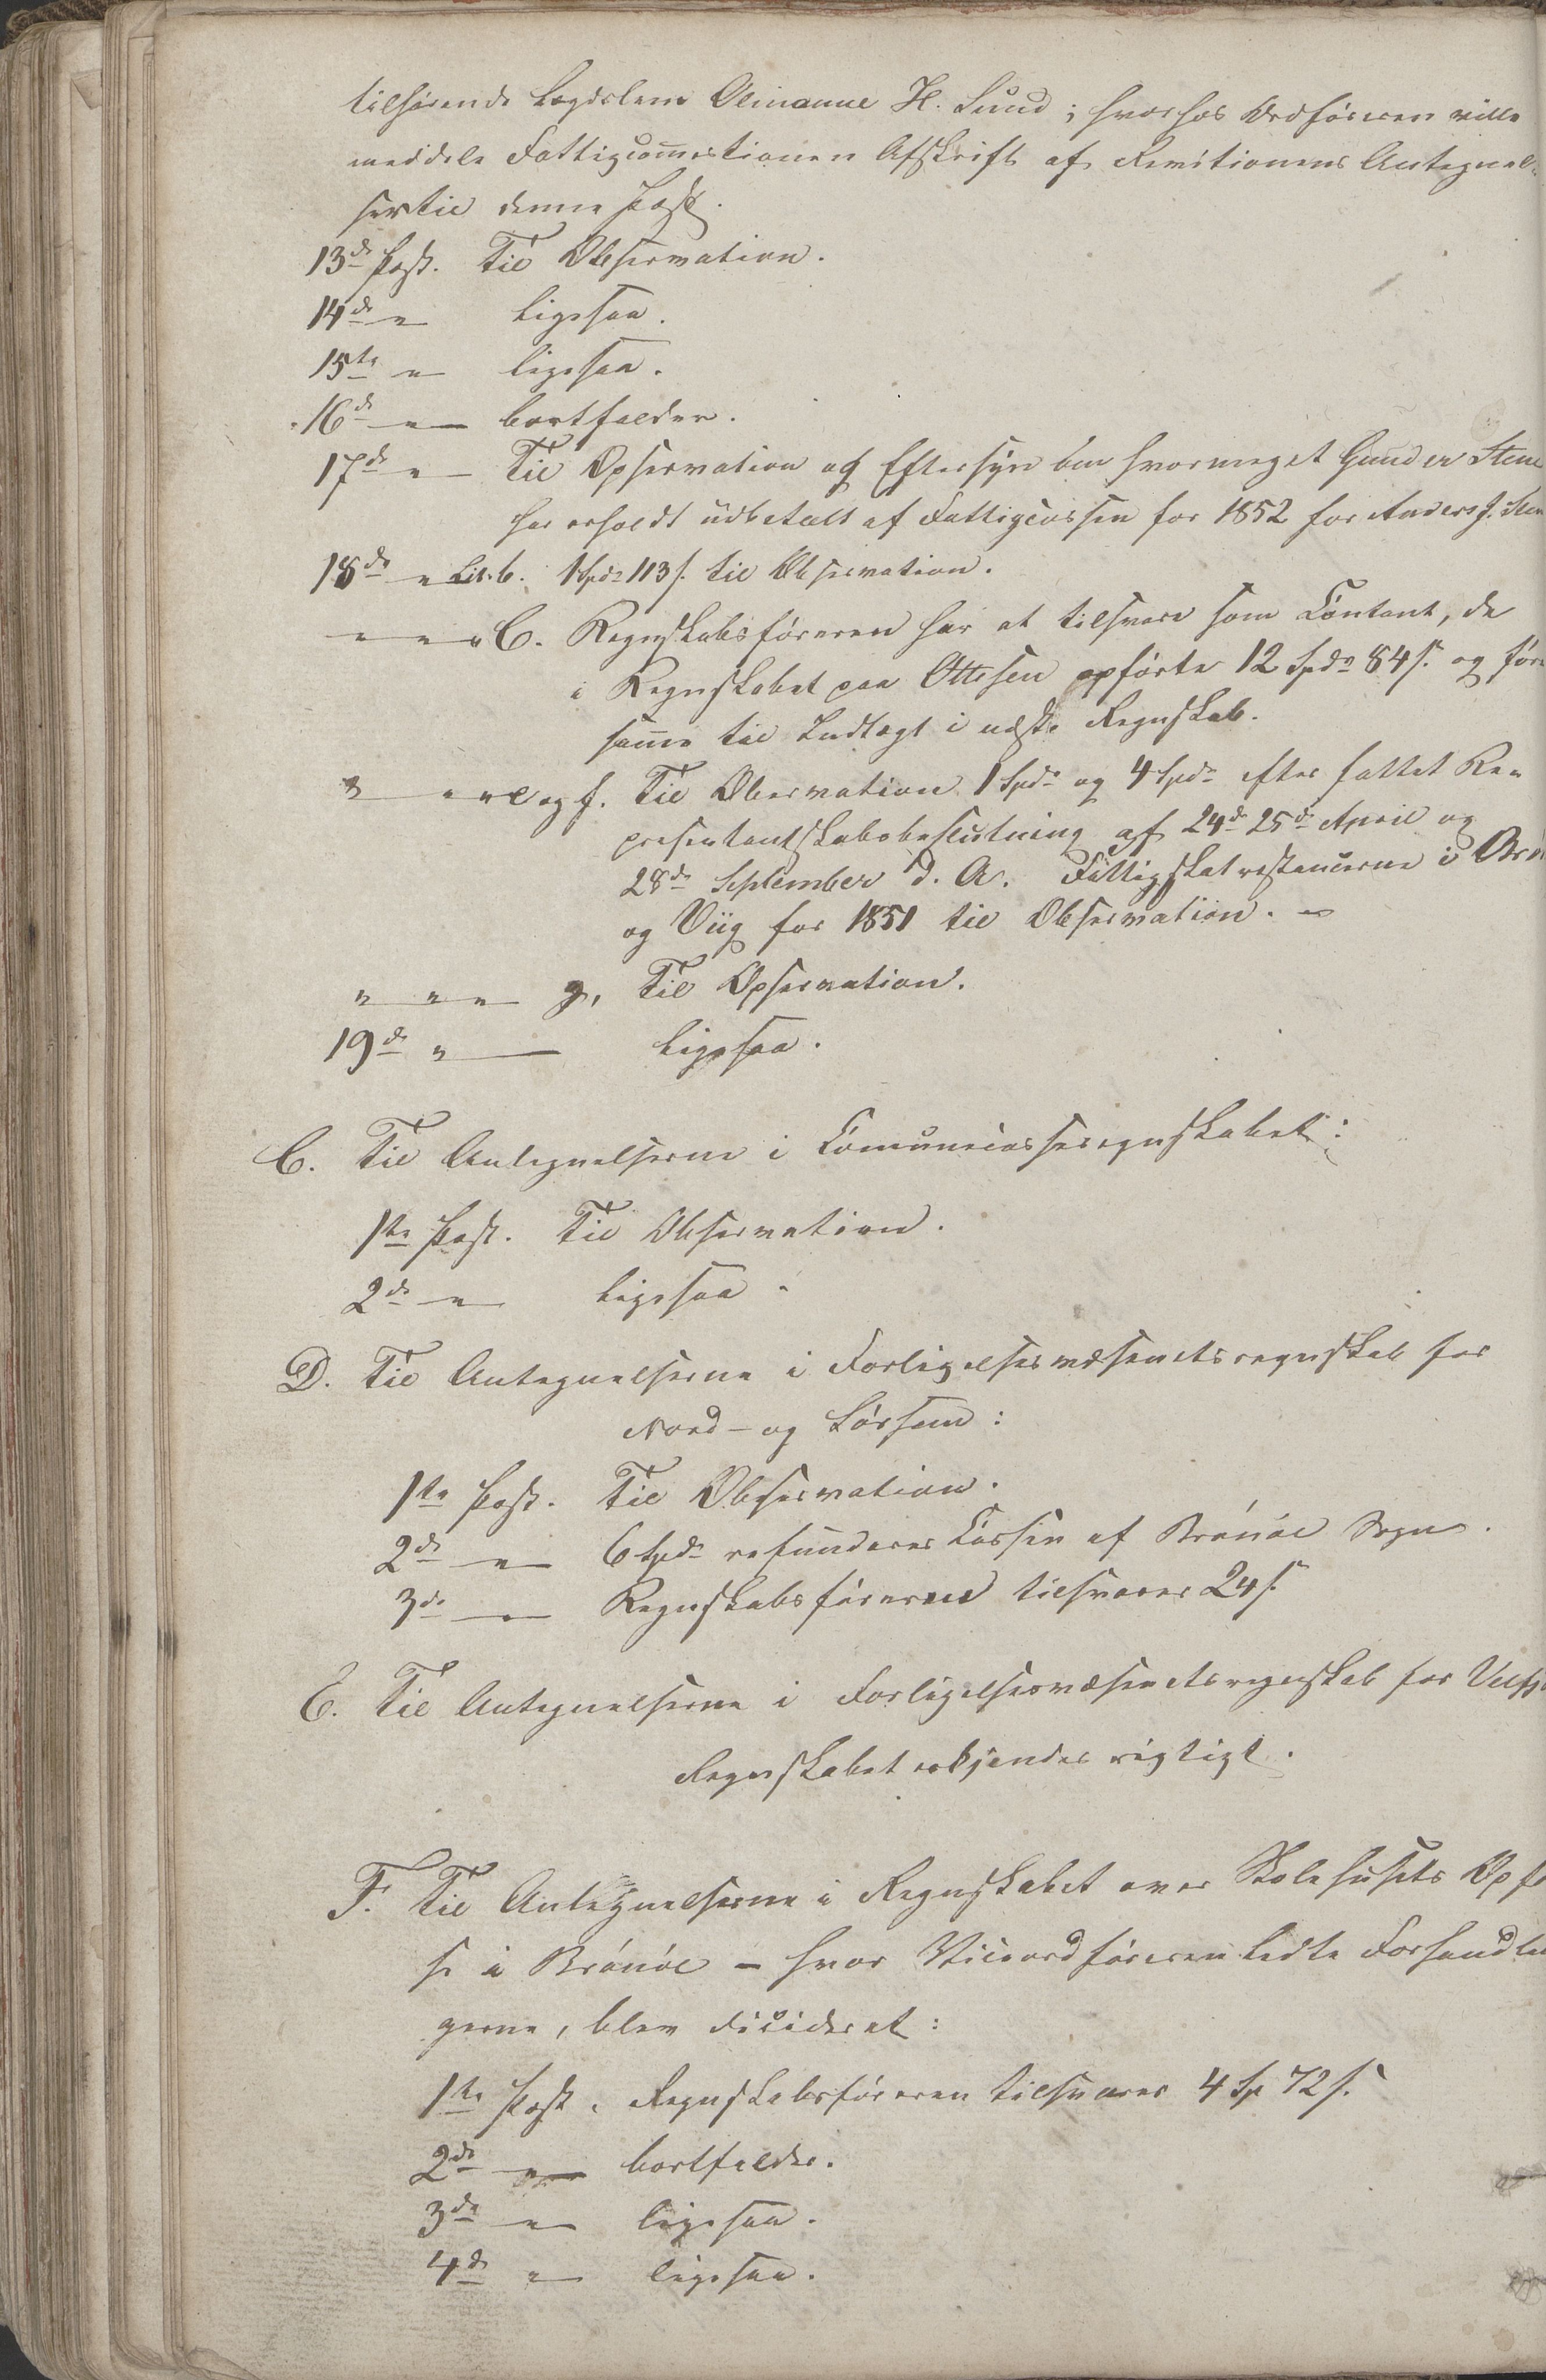 tilhørende Lægdslem Olinanne H. Lund; hvorhos Ordføreren ville
meddele Fattigcommestionen Afskrift af Revitionens Antegnel-
ser til denne Post.
13de Post. Til Observation.
14de " Ligesaa.
15te " ligesaa.
16de " bortfalder.
17de " Til Opservation og Eftersyn om hvormeget Gunder Stene
har erholdt udbetalt af Fattigcassen for 1852 for Anders J.
18de " Lit. b. 1 Spd 113 s. til Observation.
" " " C. Regnskabsføreren har at tilsvare som Contant, de
i Regnskabet paa Ottesen opførte 12 Spd 84 s. og føre
samme til Indtægt i næste Regnskab.
" " " e og f. Til Obervation 1 Spd og 4 Spd efter fattet Re-
presentantskabsbeslutning af 24de 25de April og
28de September d. A. Fattigskatrestancerne i
og Viig for 1851 til Observation. -
" " " g, Til Opservation.
19de " Ligesaa.
C. Til Antegnelserne i Comunecasseregnskabet:
1te Post. Til Observation.
2de " Ligesaa.
D. Til Antegnelserne i Forligelsesvæsenets regnskab for
Nord- og Sørsem:
1te Post. Til Observation.
2de " 6 Spd refunderes Cassen af Brönöe Sogn.
3de " Regnskabsføreren tilsvarer 24 s.
E. Til Antegnelserne i Forligelsesvæsenets regnskab for
Regnskabet erkjendes rigtigt.
F. Til Antegnelserne i Regnskabet over Skolehusets Opfø
se i Brönöe - hvor Viceordføreren ledte Forhandlin
gerne, blev dicideret:
1te Post. Regnskabsføreren tilsvarer 4 Sp 72 s.
2de " bortfalder.
3de " ligesaa.
4de " ligesaa.